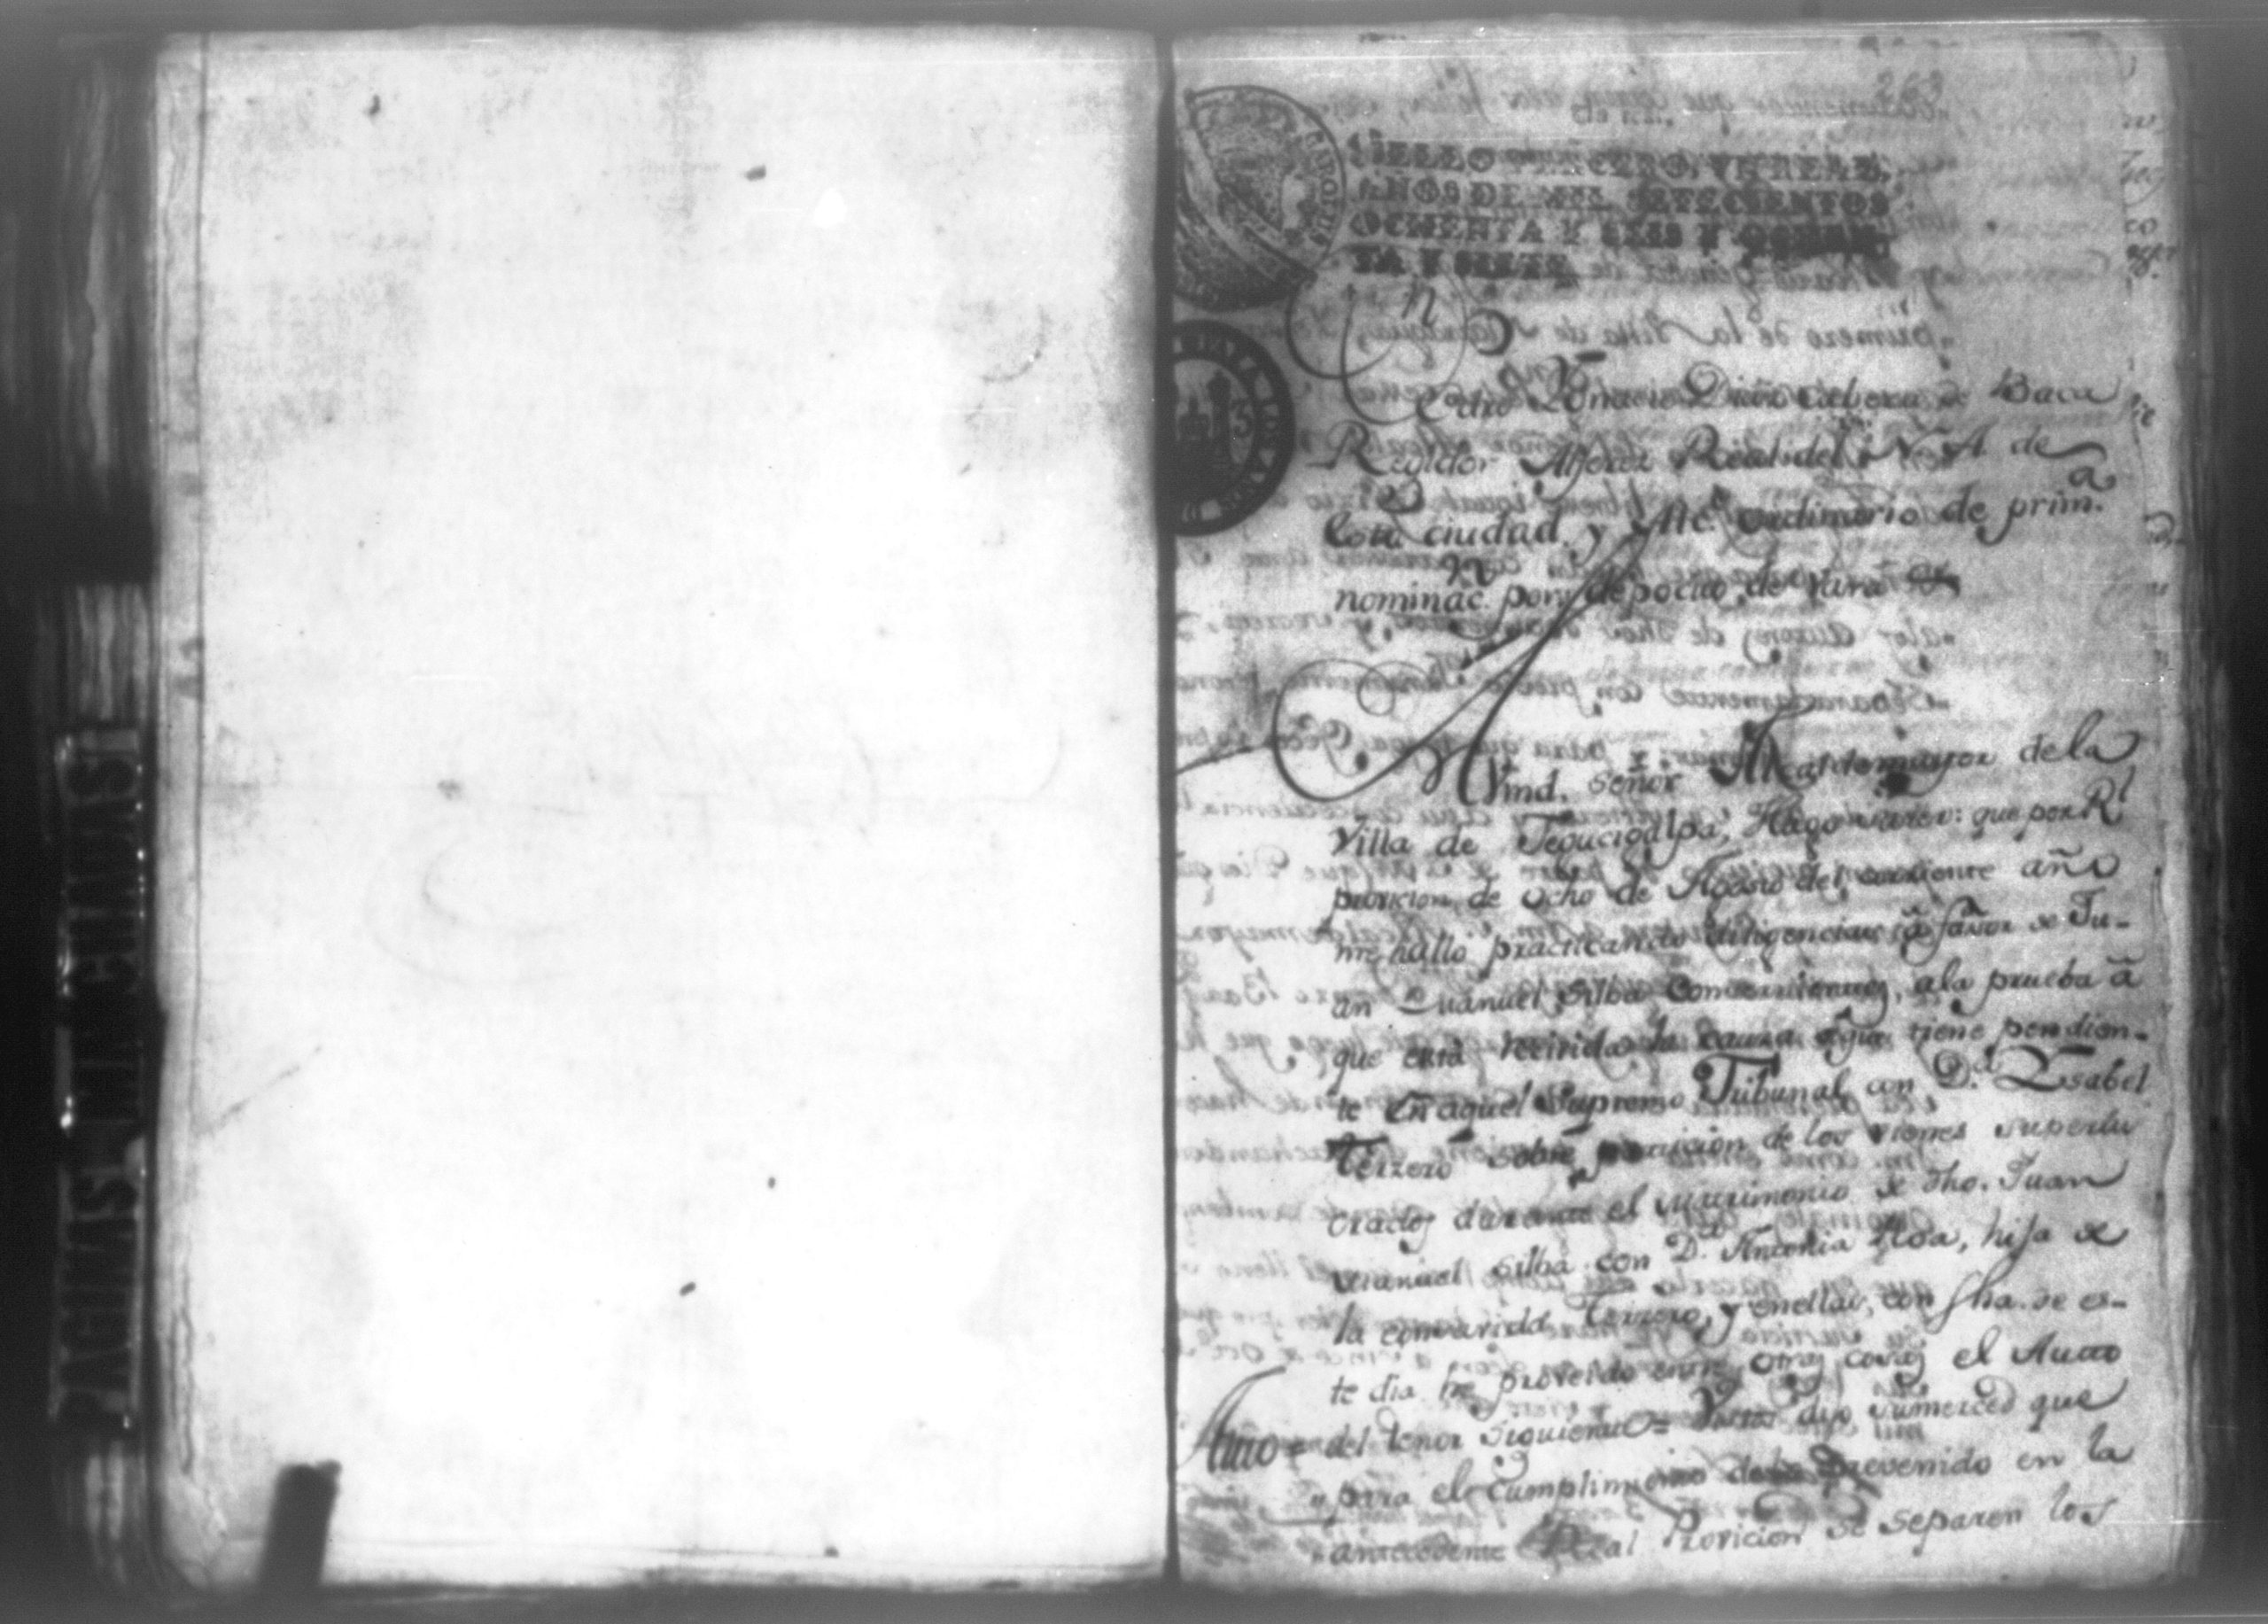 PAGINAS EN CHINAS
263
SELLO TERCERO, VN REAL,
AÑOS DE MIL SETECIENTOS
OCHENTA Y SEIS Y OCHEN-
TA Y SIETE
Dn
Pedro Ygnacio Dias Cabeza de Baca
Regidor Alferez Real del N. A. de
esta ciudad, y Alc.e ordinario de prim.a
nominac.on por depocito de vara &
A Vmd. señor Alcaldemayor de la
Villa de Tegucigalpa, Hago saver: que por Rl
provicion de ocho de Agosto del corriente año
me hallo practicando diligencias á favor de Ju-
an Manuel Silba concernientes, ala prueba á
que está recivida la causa que tiene pendien-
te en aquel Supremo Tribunal con D.a Ysabel
Terzero sobre particion de los vienes superlu
crados durante el matrimonio de dho. Juan
Manuel Silba con D.a Antonia Roa, hija de
la comarida Terzero, y en ellas, con fha. de es-
te dia he proveido entre otras cosas el Aucto
Auto = del tenor siguiente = Yttem dijo sumerced que
para el cumplimiento delo prevenido en la
antecedente Real Provicion se separen los